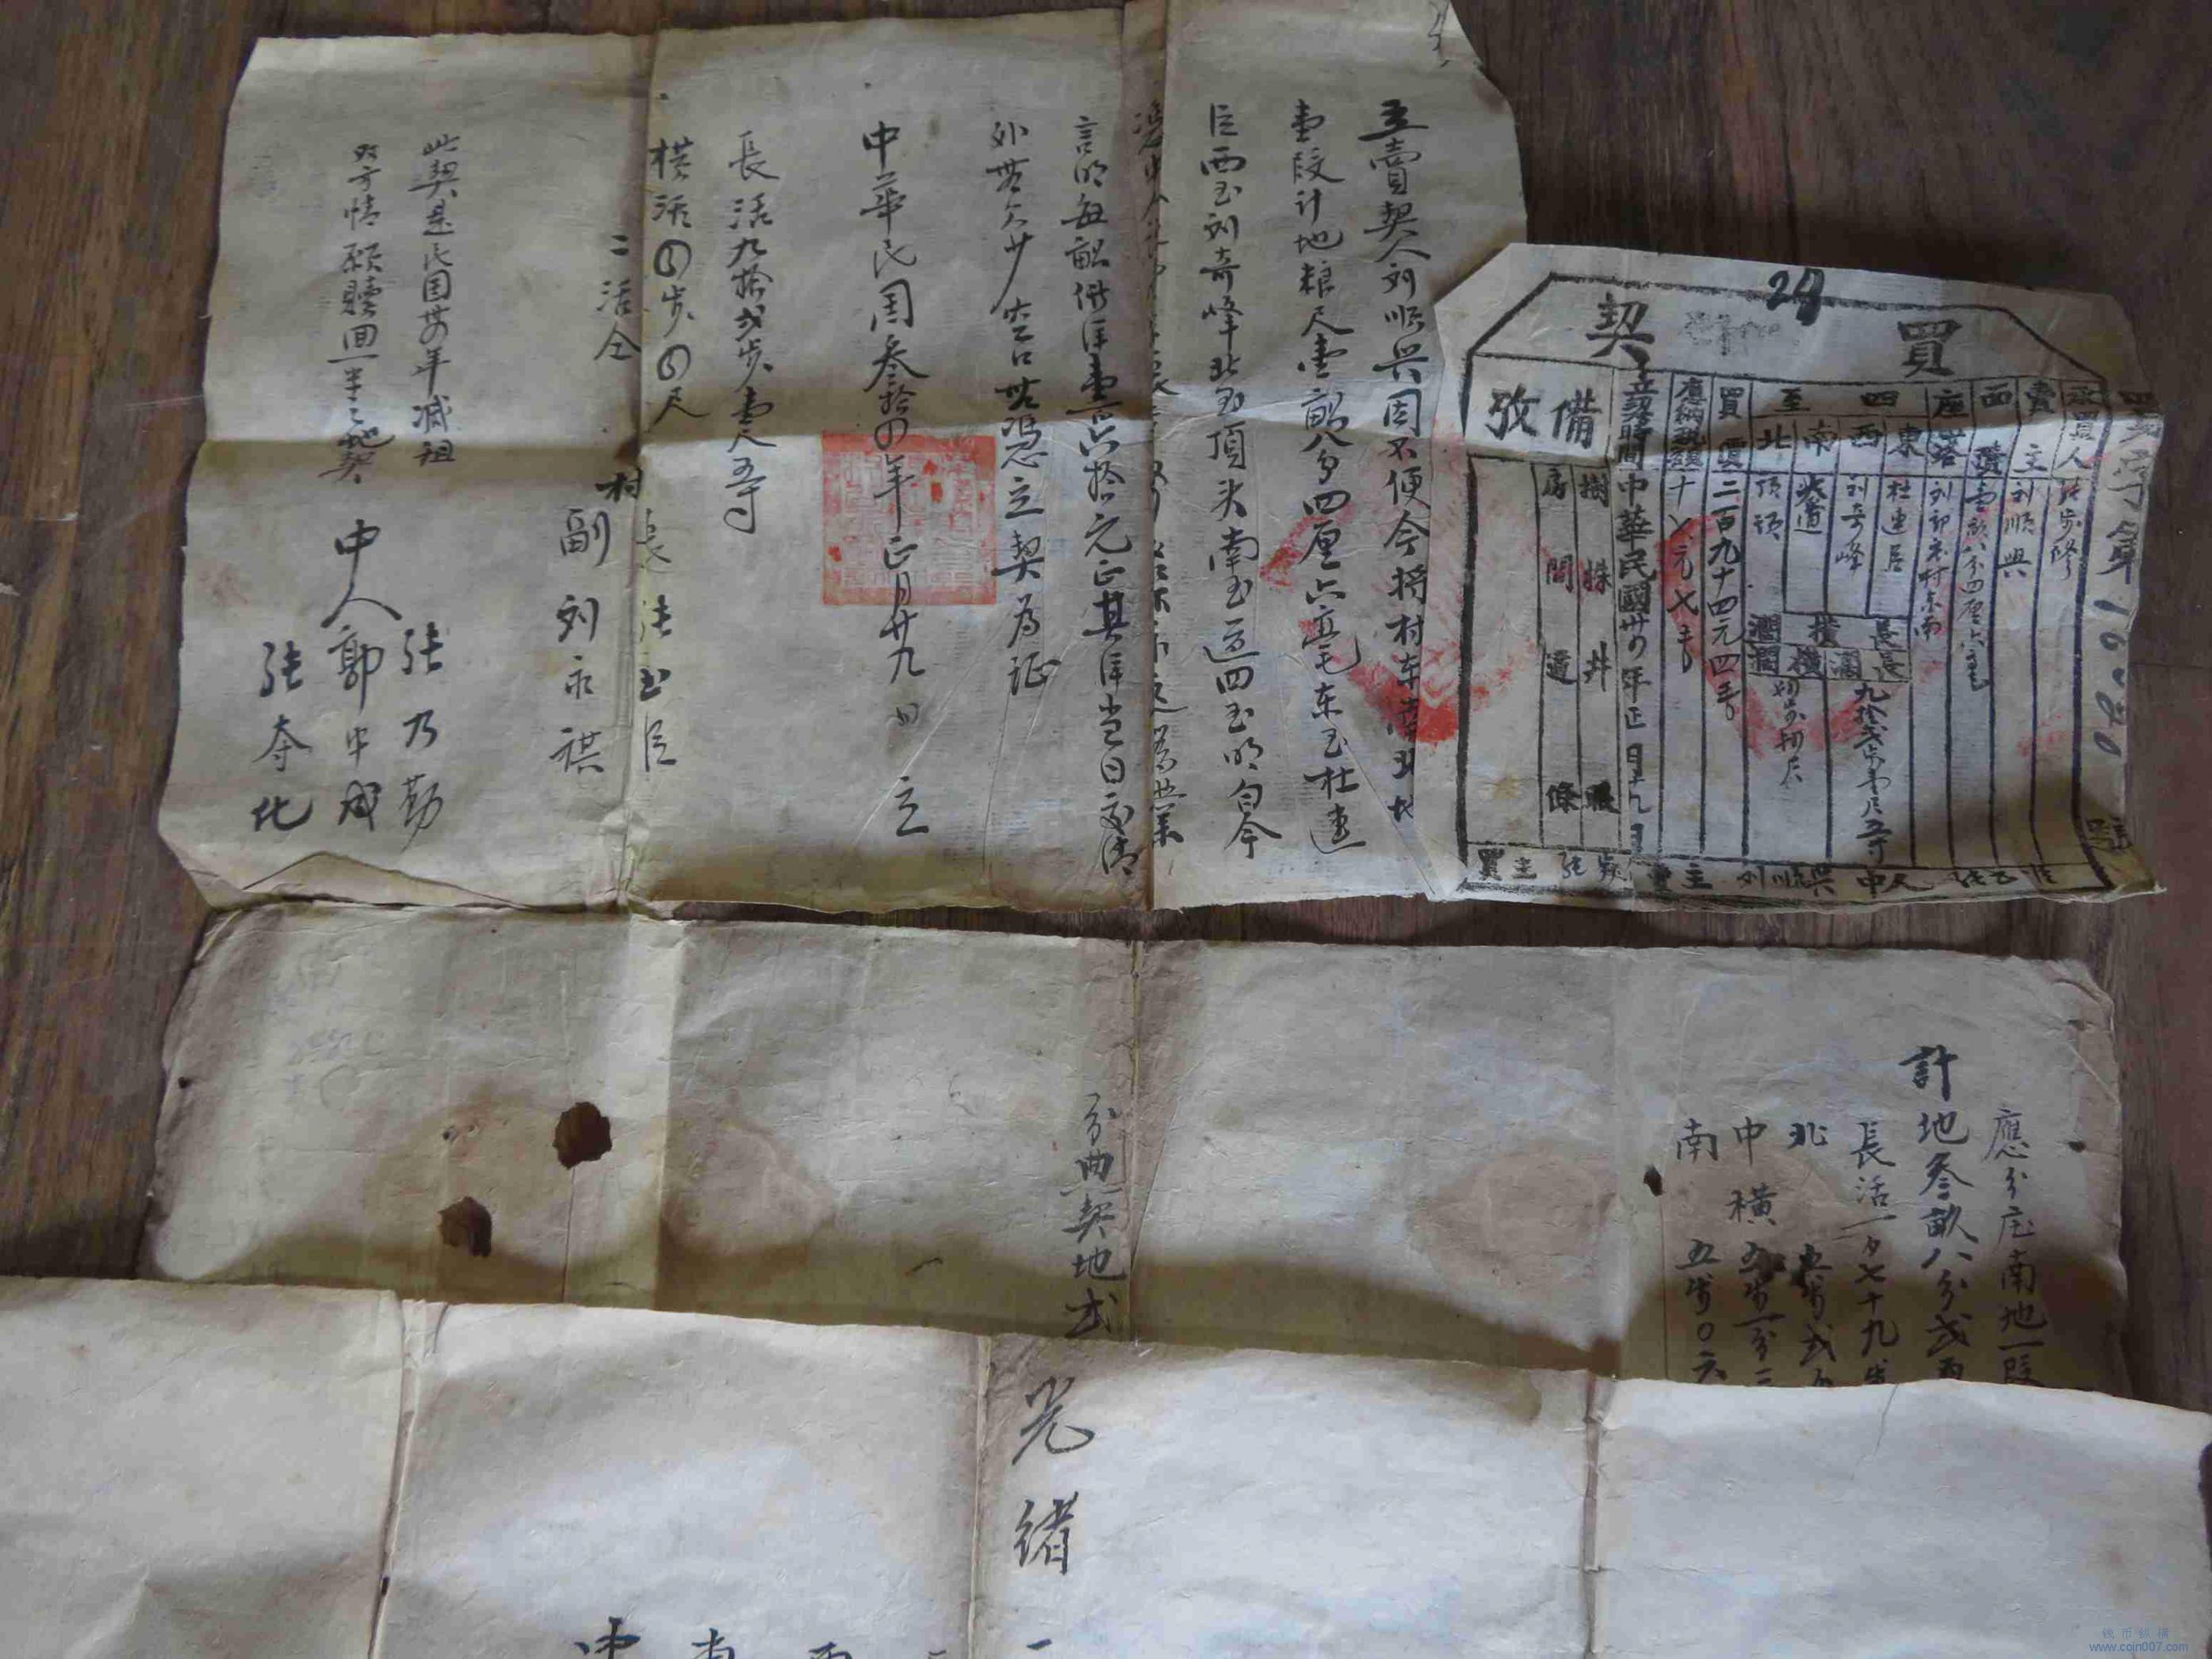 立賣契人刘順兴因不便今将村东南北地
壹段计地粮尺壹畝八分四厘六毫东至杜連
臣西至刘奇峰北至頂头南至道四至明白今
憑中人
言明每畝价洋壹百六拾元正其洋当日交清
外無欠少空口無憑立契为证
中華民国叁拾四年正月廿九日立
長活九拾弍步壹尺五寸
横活四步四尺
二活仝
村長張玉臣
副刘永祺
此契是民国卅四年减租
双方情願贖回一半之地契
中人
張乃勤
郭中成
張奪化
24
買契
承買人
賣主刘順興
面積壹畝八分四厘六毫
座落
四至
東杜連臣
西刘奇峰
南道
北頂頭
長九拾弍步壹尺五寸
橫濶四步四尺
買價二百九十四元四毛
應納稅額十七元七毛
立契時間中華民國卅四年正月廿九日
備攷
樹株井眼
房間道條
買主張
賣主刘順興
中人
應分庄南地一段
計地叁畝八分弍
長活一百七十九步
北五步弍
中橫五步一分二
南五步0六
分典契地弍
光緒
中南西
www.coin007.com